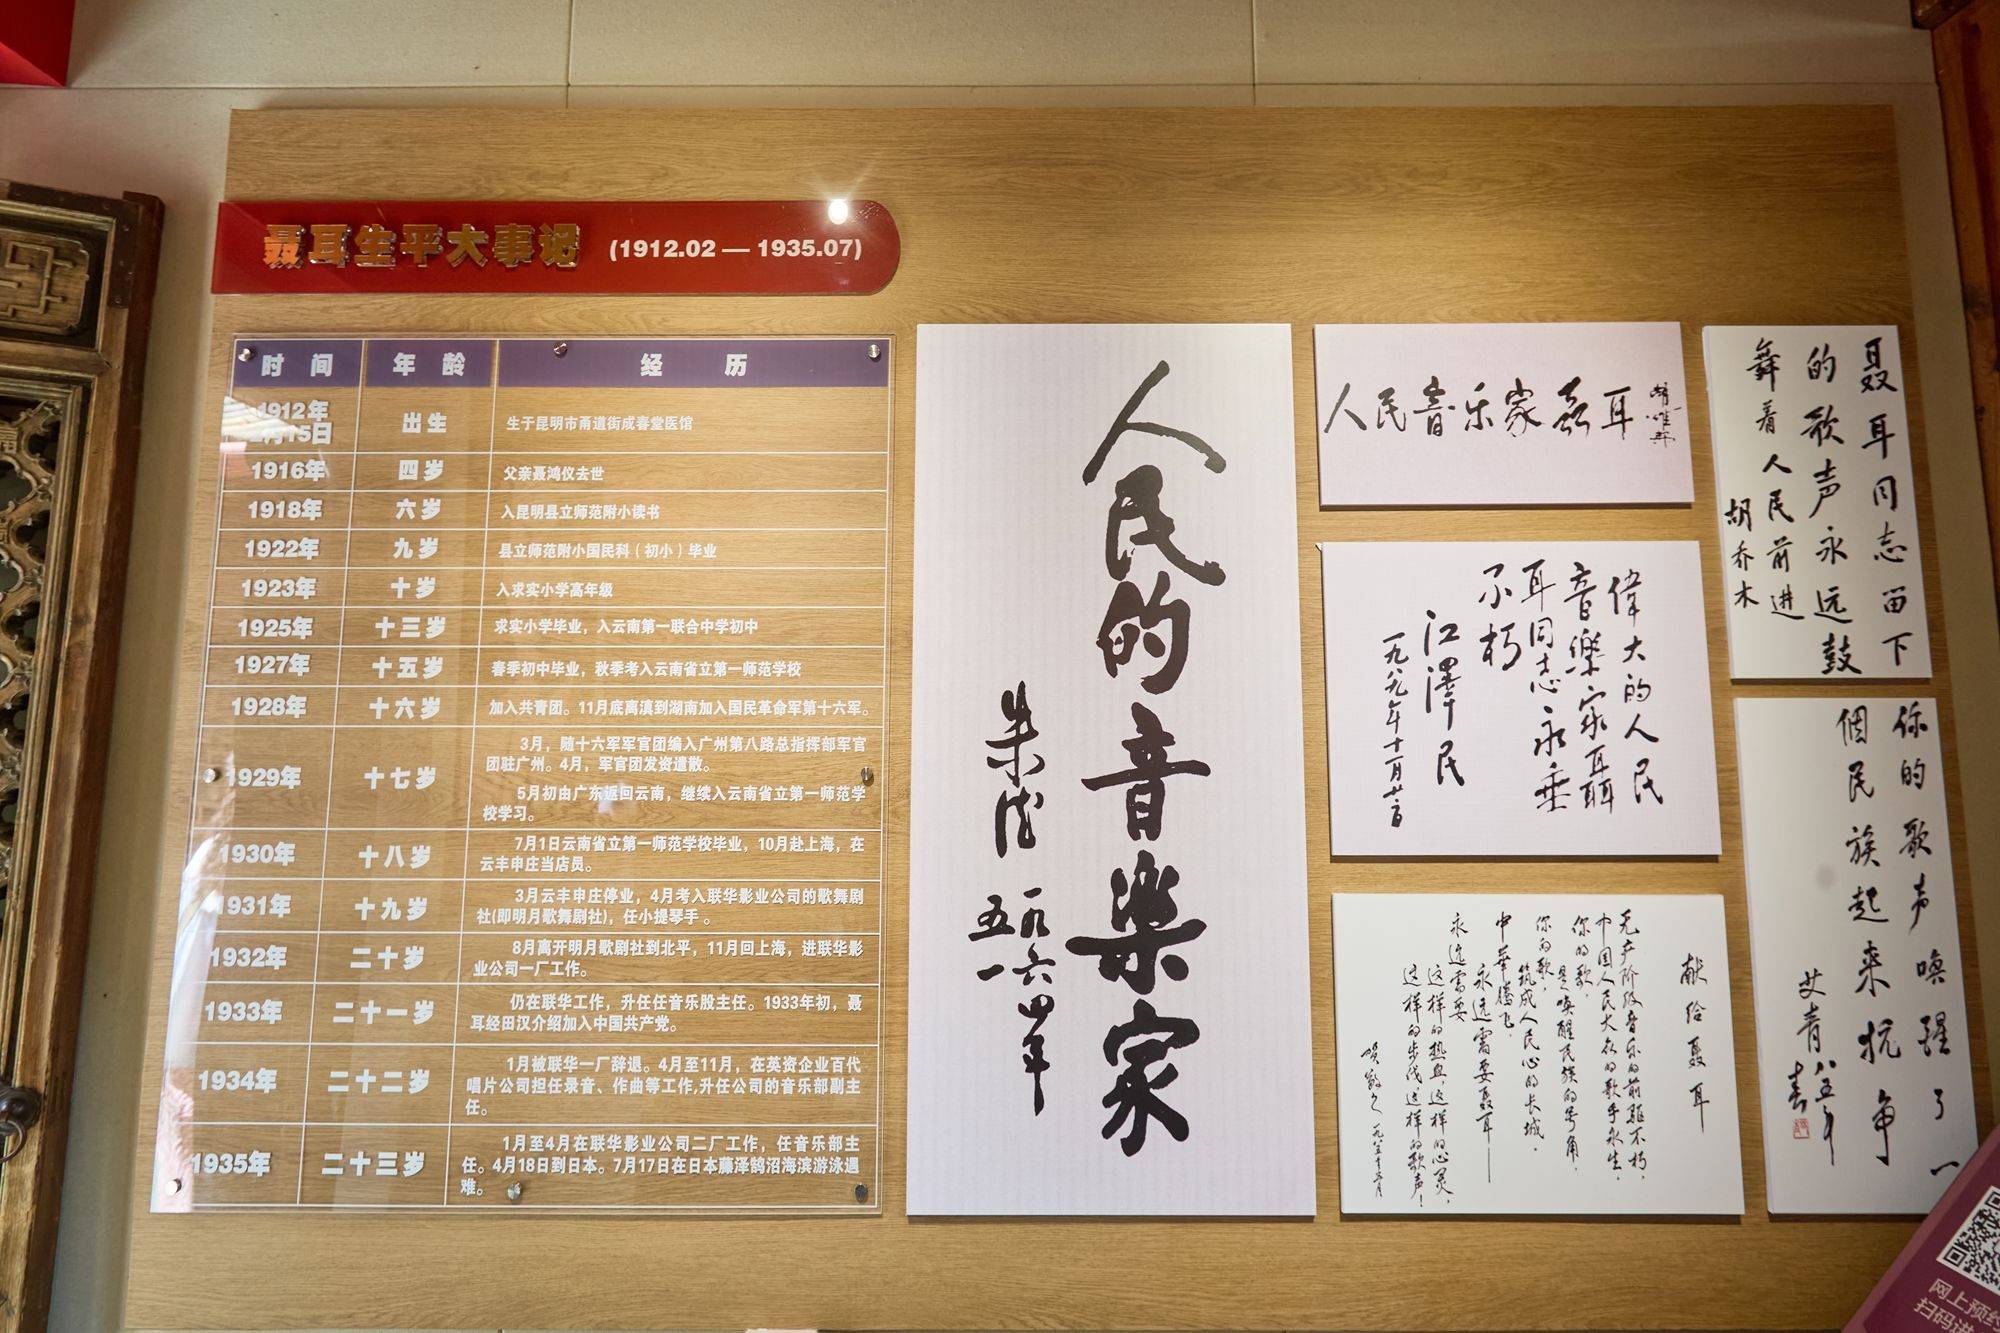 聂耳生平大事记 (1912.02 — 1935.07)
时 间 年 龄 经 历
1912年
月15日
出生
生于昆明市甬道街成春堂医馆
1916年 四岁 父亲聂鸿仪去世
1918年 六岁 入昆明县立师范附小读书
1922年 九岁 县立师范附小国民科（初小）毕业
1923年 十岁 入求实小学高年级
1925年 十三岁 求实小学毕业，入云南第一联合中学初中
1927年 十五岁 春季初中毕业，秋季考入云南省立第一师范学校
1928年 十六岁 加入共青团。11月底离滇到湖南加入国民革命军第十六军。
1929年 十七岁
3月，随十六军军官团编入广州第八路总指挥部军官
团驻广州。4月，军官团发资遣散。
5月初由广东返回云南，继续入云南省立第一师范学
校学习。
1930年 十八岁
7月1日云南省立第一师范学校毕业，10月赴上海，在
云丰申庄当店员。
1931年 十九岁
3月云丰申庄停业，4月考入联华影业公司的歌舞剧
社(即明月歌舞剧社)，任小提琴手。
1932年 二十岁
8月离开明月歌剧社到北平，11月回上海，进联华影
业公司一厂工作。
1933年 二十一岁
仍在联华工作，升任任音乐股主任。1933年初，聂
耳经田汉介绍加入中国共产党。
1934年 二十二岁
1月被联华一厂辞退。4月至11月，在英资企业百代
唱片公司担任录音、作曲等工作,升任公司的音乐部副主
任。
1935年 二十三岁
1月至4月在联华影业公司二厂工作，任音乐部主
任。4月18日到日本。7月17日在日本藤泽鹄沼海滨游泳遇
难。
人民的音乐家
朱德
一九六四年
五一
人民音乐家聂耳
偉大的人民
音樂家聶
耳同志永垂
不朽
江澤民
一九八九年十一月廿二日
献给聂耳
无产阶级音乐的前驱不朽，
中国人民大众的歌手永生，
你的歌，
是唤醒民族的号角，
你的歌，
筑成人民心的长城，
中華腾飞，
永远需要聂耳——
永远需要
这样的热血，这样的心灵，
这样的步伐，这样的歌声！
贺敬之
聂耳同志留下
的歌声永远鼓
舞着人民前进
胡乔木
你的歌声唤醒了一
個民族起来抗争
艾青
八五年
春
网上预约
扫码进